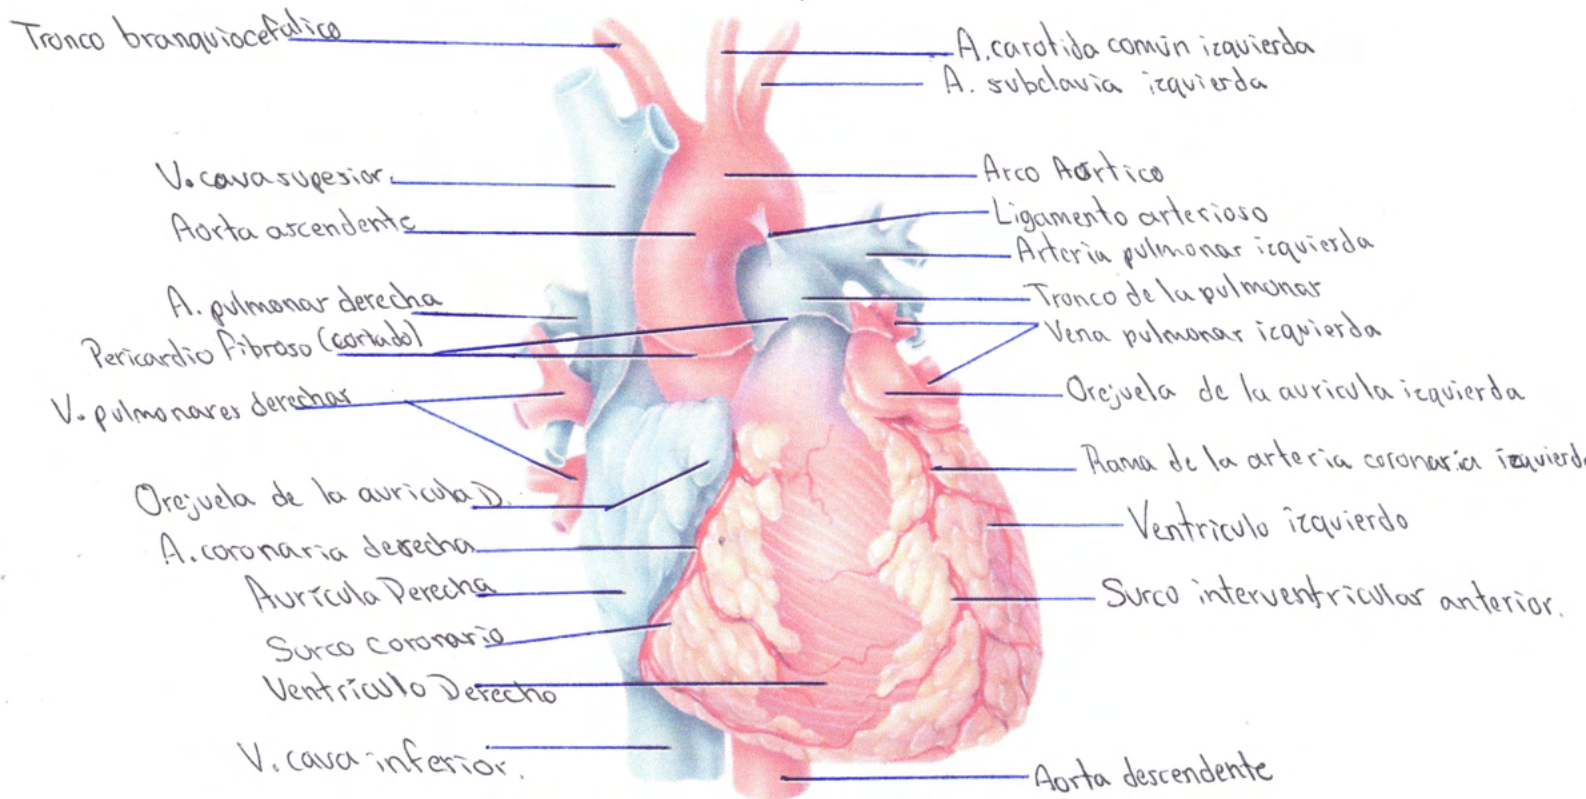 Tronco branquiocefalico
V. cava superior.
Aorta ascendente
A. pulmonar derecha
Pericardio Fibroso (cortado)
V. pulmonares derechas
Orejuela de la auricula D.
A. coronaria derecha
Aurícula Derecha
Surco coronario
Ventrículo Derecho
V. cava inferior.
A. carotida común izquierda
A. subclavia izquierda
Arco Aórtico
Ligamento arterioso
Arteria pulmonar izquierda
Tronco de la pulmonar
Vena pulmonar izquierda
Orejuela de la auricula izquierda
Rama de la arteria coronaria izquierda
Ventriculo izquierdo
Surco interventricular anterior.
Aorta descendente